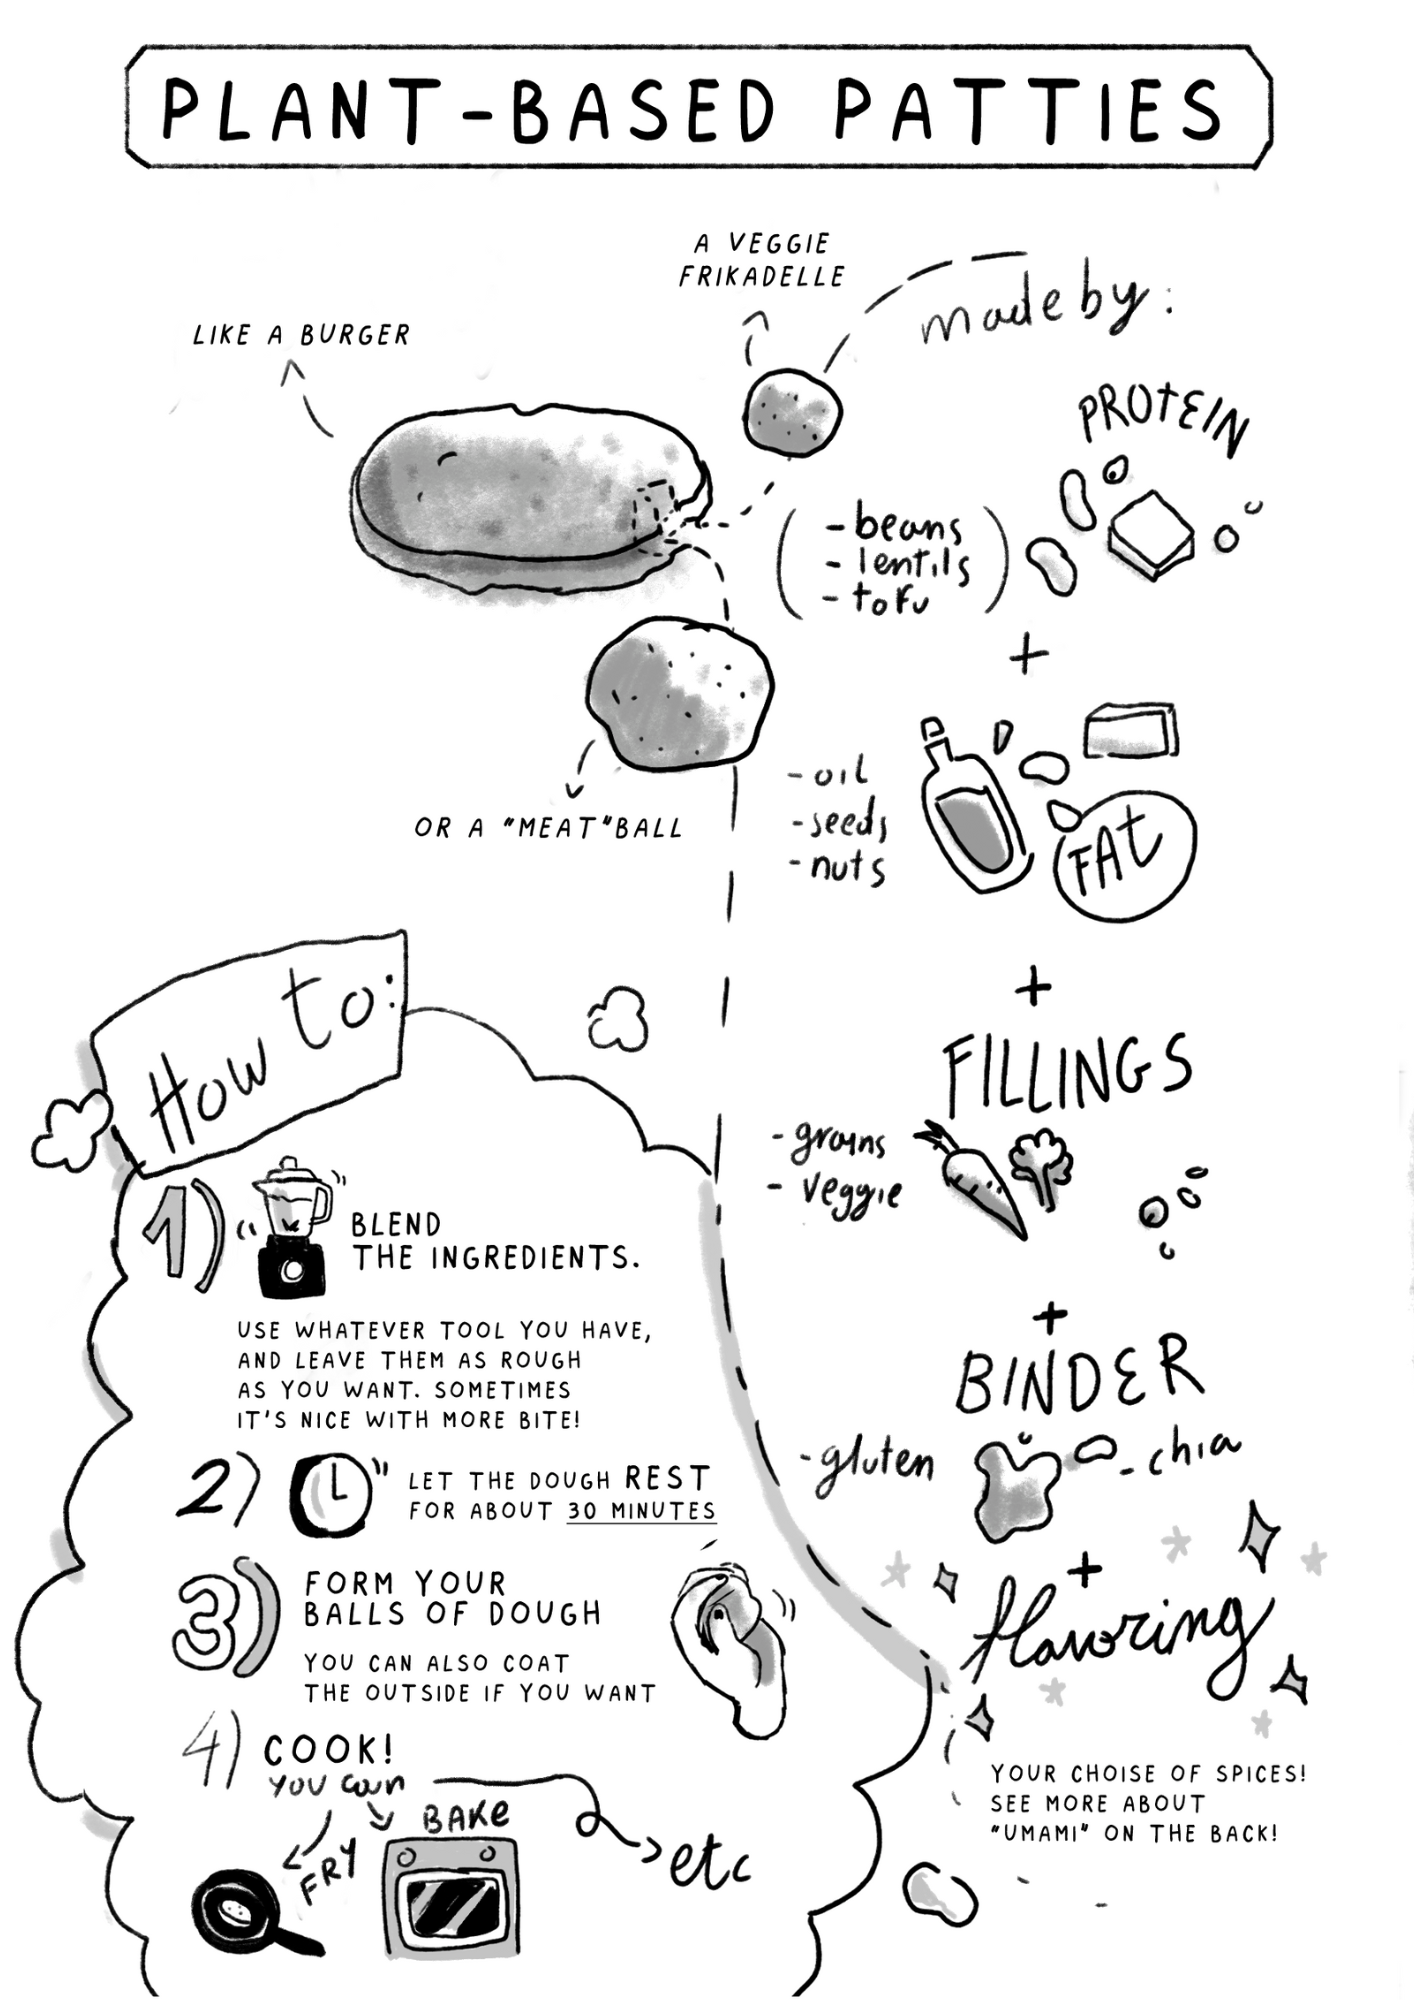 PLANT-BASED PATTIES
A VEGGIE
FRIKADELLE
made by:
LIKE A BURGER
PROTEIN
- beans
- lentils
- tofu
+
OR A "MEAT"BALL
- oil
- seeds
- nuts
FAT
+
FILLINGS
- grains
- veggie
+
BINDER
- gluten
- chia
+
flavoring
YOUR CHOISE OF SPICES!
SEE MORE ABOUT
"UMAMI" ON THE BACK!
How to:
1)
BLEND
THE INGREDIENTS.
USE WHATEVER TOOL YOU HAVE,
AND LEAVE THEM AS ROUGH
AS YOU WANT. SOMETIMES
IT'S NICE WITH MORE BITE!
2)
LET THE DOUGH REST
FOR ABOUT 30 MINUTES
3)
FORM YOUR
BALLS OF DOUGH
YOU CAN ALSO COAT
THE OUTSIDE IF YOU WANT
4)
COOK!
you can
FRY
BAKE
etc